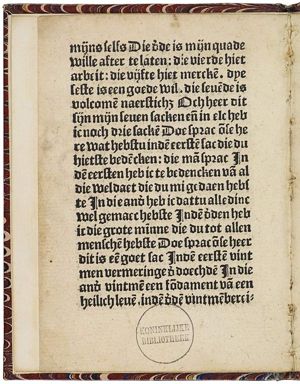 mijns selfs Die ōde is mijn quade
wille after te laten: die vierde hiet
arbeit: die vijfte hiet mercken. dye
seste is een goede wil. die seuēde is
volcomē naersticheyt Och heer dit
sijn mijn seuen sacken eñ in elc heb
ic noch drie sackē Doe sprac ōse he
re wat hebstu indē eerstē sac die du
hietste bedēcken: die mā sprac In
dē eersten heb ic te bedencken vā al
die weldaet die du mi gedaen hebs
te In die andʼ heb ic dattu alle dinc
wel gemaect hebste Indē ōden heb
ic die grote minne die du tot allen
menschē hebste Doe sprac ōse heer
dit is eē goet sac Indē eerstē vint
men vermeringe dʼ doechdē In die
andʼ vintmē een fōdament vā een
heilich leuē. indē ōdē vintmē verci-
KONINKLIJKE
BIBLIOTHEEK